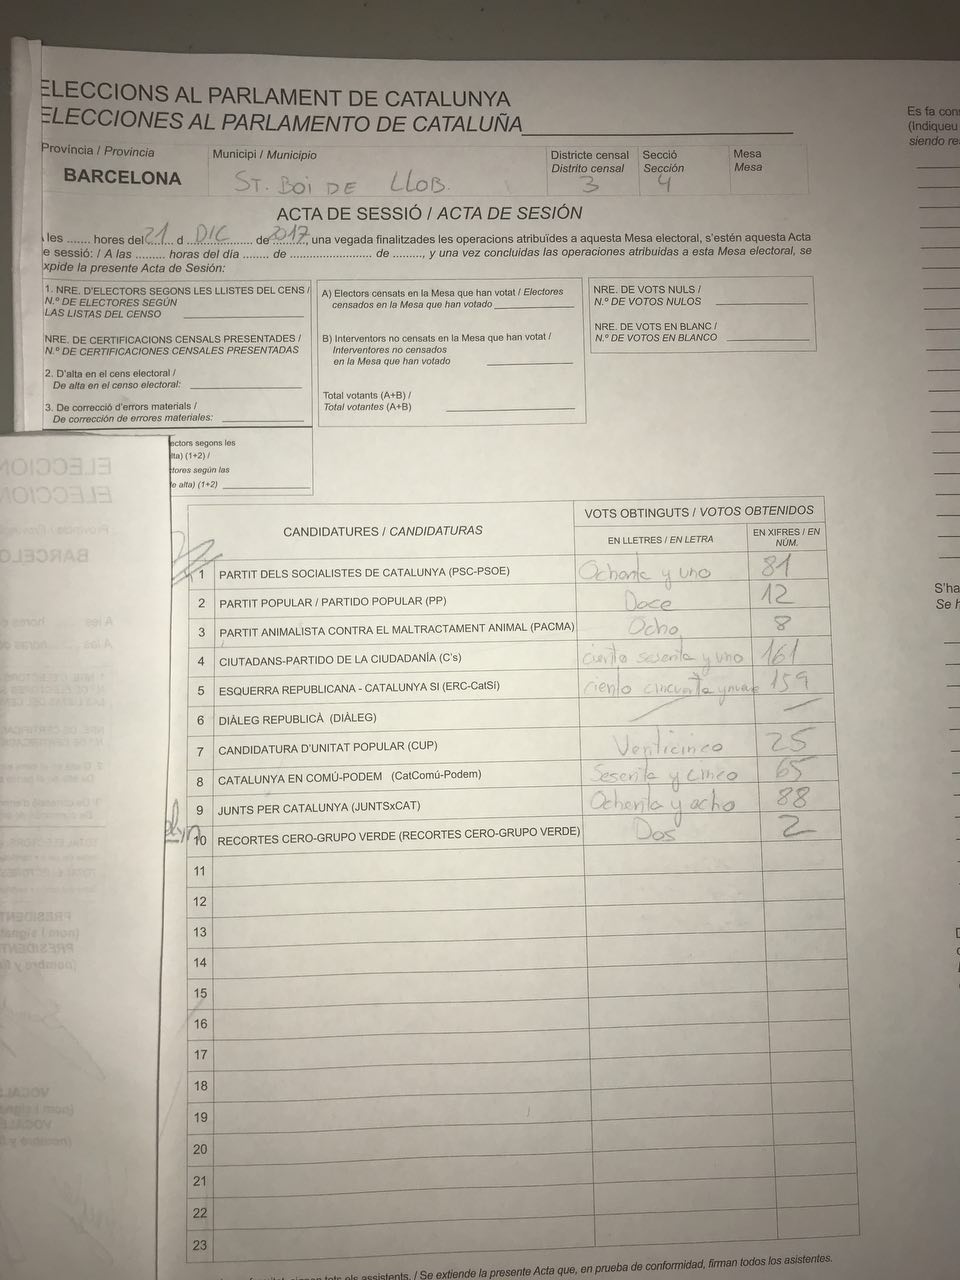 ELECCIONS AL PARLAMENT DE CATALUNYA
ELECCIONES AL PARLAMENTO DE CATALUÑA
Província / Provincia
BARCELONA
Municipi / Municipio
ST. BOI DE LLOB.
Districte censal
Distrito censal
3
Secció
Sección
4
Mesa
Mesa
ACTA DE SESSIÓ / ACTA DE SESIÓN
les ....... hores del 21 d DIC de 2017, una vegada finalitzades les operacions atribuïdes a aquesta Mesa electoral, s'estén aquesta Acta
e sessió: / A las ......... horas del día ........ de ......................... de ........., y una vez concluidas las operaciones atribuidas a esta Mesa electoral, se
xpide la presente Acta de Sesión:
1. NRE. D'ELECTORS SEGONS LES LLISTES DEL CENS /
N.º DE ELECTORES SEGÚN
LAS LISTAS DEL CENSO
NRE. DE CERTIFICACIONS CENSALS PRESENTADES /
N.º DE CERTIFICACIONES CENSALES PRESENTADAS
2. D'alta en el cens electoral /
De alta en el censo electoral:
3. De correcció d'errors materials /
De corrección de errores materiales:
ectors segons les
lta) (1+2) /
tores según las
e alta) (1+2)
A) Electors censats en la Mesa que han votat / Electores
censados en la Mesa que han votado
B) Interventors no censats en la Mesa que han votat /
Interventores no censados
en la Mesa que han votado
Total votants (A+B) /
Total votantes (A+B)
NRE. DE VOTS NULS /
N.º DE VOTOS NULOS
NRE. DE VOTS EN BLANC /
N.º DE VOTOS EN BLANCO
Es fa con
(Indiqueu
siendo re
CANDIDATURES / CANDIDATURAS
VOTS OBTINGUTS / VOTOS OBTENIDOS
EN LLETRES / EN LETRA
EN XIFRES / EN
NÚM.
1 PARTIT DELS SOCIALISTES DE CATALUNYA (PSC-PSOE) Ochenta y uno 81
2 PARTIT POPULAR / PARTIDO POPULAR (PP) Doce 12
3 PARTIT ANIMALISTA CONTRA EL MALTRACTAMENT ANIMAL (PACMA) Ocho 8
4 CIUTADANS-PARTIDO DE LA CIUDADANÍA (C's) ciento sesenta y uno 161
5 ESQUERRA REPUBLICANA - CATALUNYA SI (ERC-CatSí) ciento cincuenta y nueve 159
6 DIÀLEG REPUBLICÀ (DIÀLEG)
7 CANDIDATURA D'UNITAT POPULAR (CUP) Venticinco 25
8 CATALUNYA EN COMÚ-PODEM (CatComú-Podem) Sesenta y cinco 65
9 JUNTS PER CATALUNYA (JUNTSxCAT) Ochenta y ocho 88
10 RECORTES CERO-GRUPO VERDE (RECORTES CERO-GRUPO VERDE) Dos 2
11
12
13
14
15
16
17
18
19
20
21
22
23
S'ha
Se h
assistents. / Se extiende la presente Acta que, en prueba de conformidad, firman todos los asistentes.